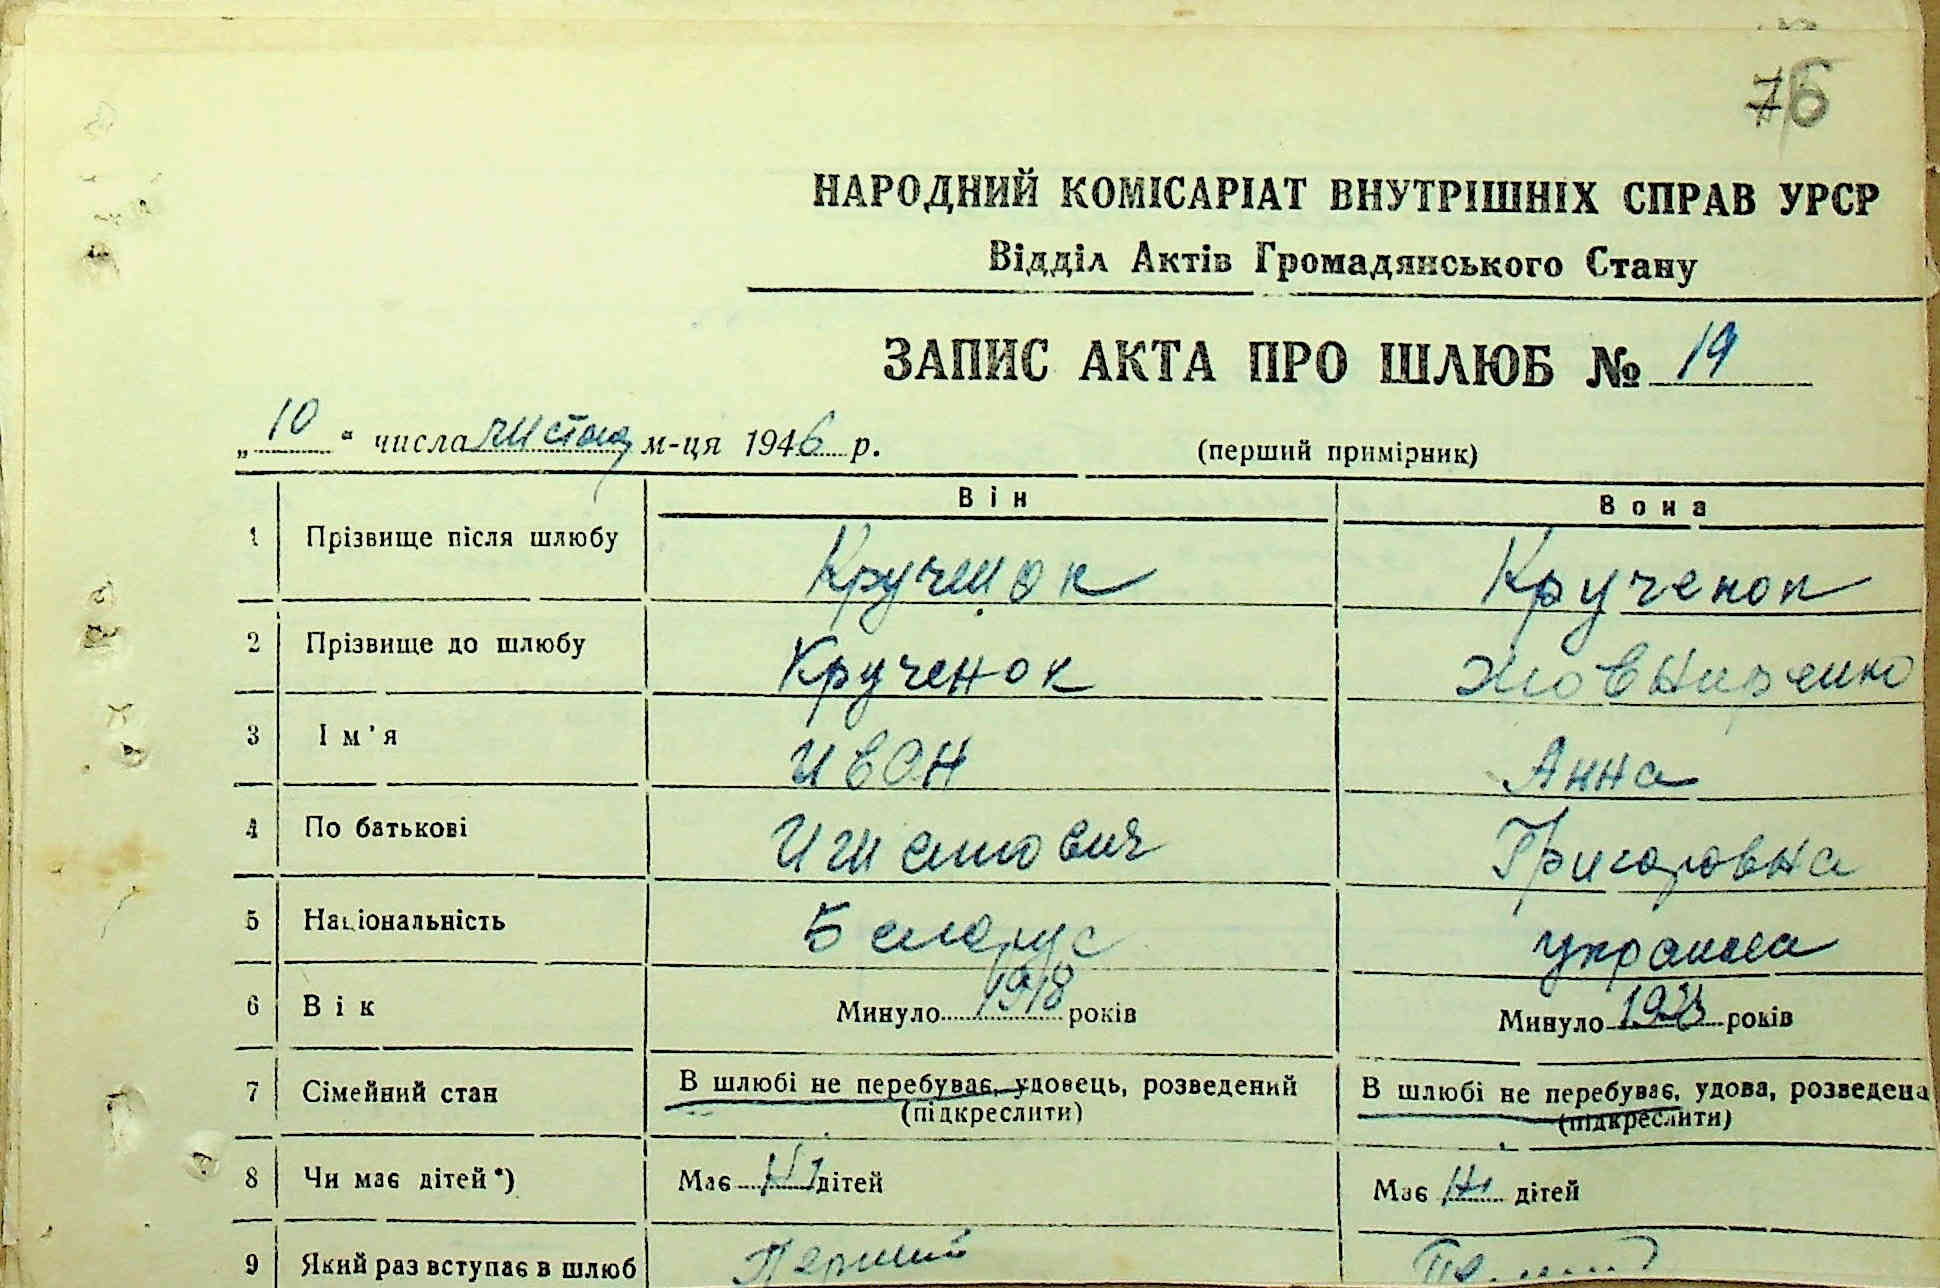 76
НАРОДНИЙ КОМІСАРІАТ ВНУТРІШНІХ СПРАВ УРСР
Відділ Актів Громадянського Стану
ЗАПИС АКТА ПРО ШЛЮБ № 19
„10“ числа листопад м-ця 1946 р. (перший примірник)
Він Вона
1 Прізвище після шлюбу Крученок Крученок
2 Прізвище до шлюбу Крученок Жовниренко
3 Ім'я Иван Анна
4 По батькові Григоровна
5 Національність Белорус украинка
6 Вік Минуло 1918 років Минуло 1923 років
7 Сімейний стан В шлюбі не перебуває, удовець, розведений В шлюбі не перебуває, удова, розведена
(підкреслити) (підкреслити)
8 Чи має дітей*) Має Ні дітей Має Ні дітей
9 Який раз вступає в шлюб Перший